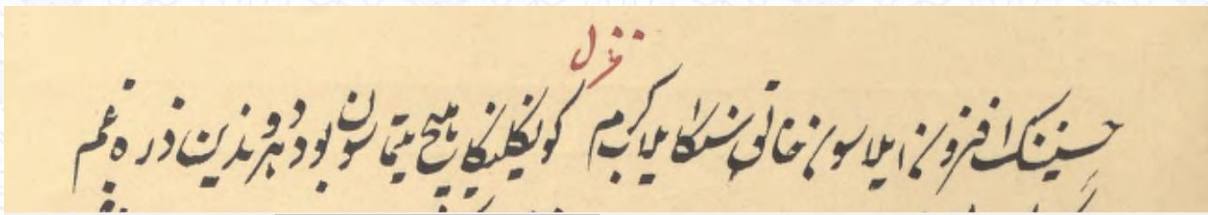 غزل
حسنینک افزون ایلاسون خالق سنکا ایلاب کرم کونکلینکا هیچ یتماسون بو ذره غم